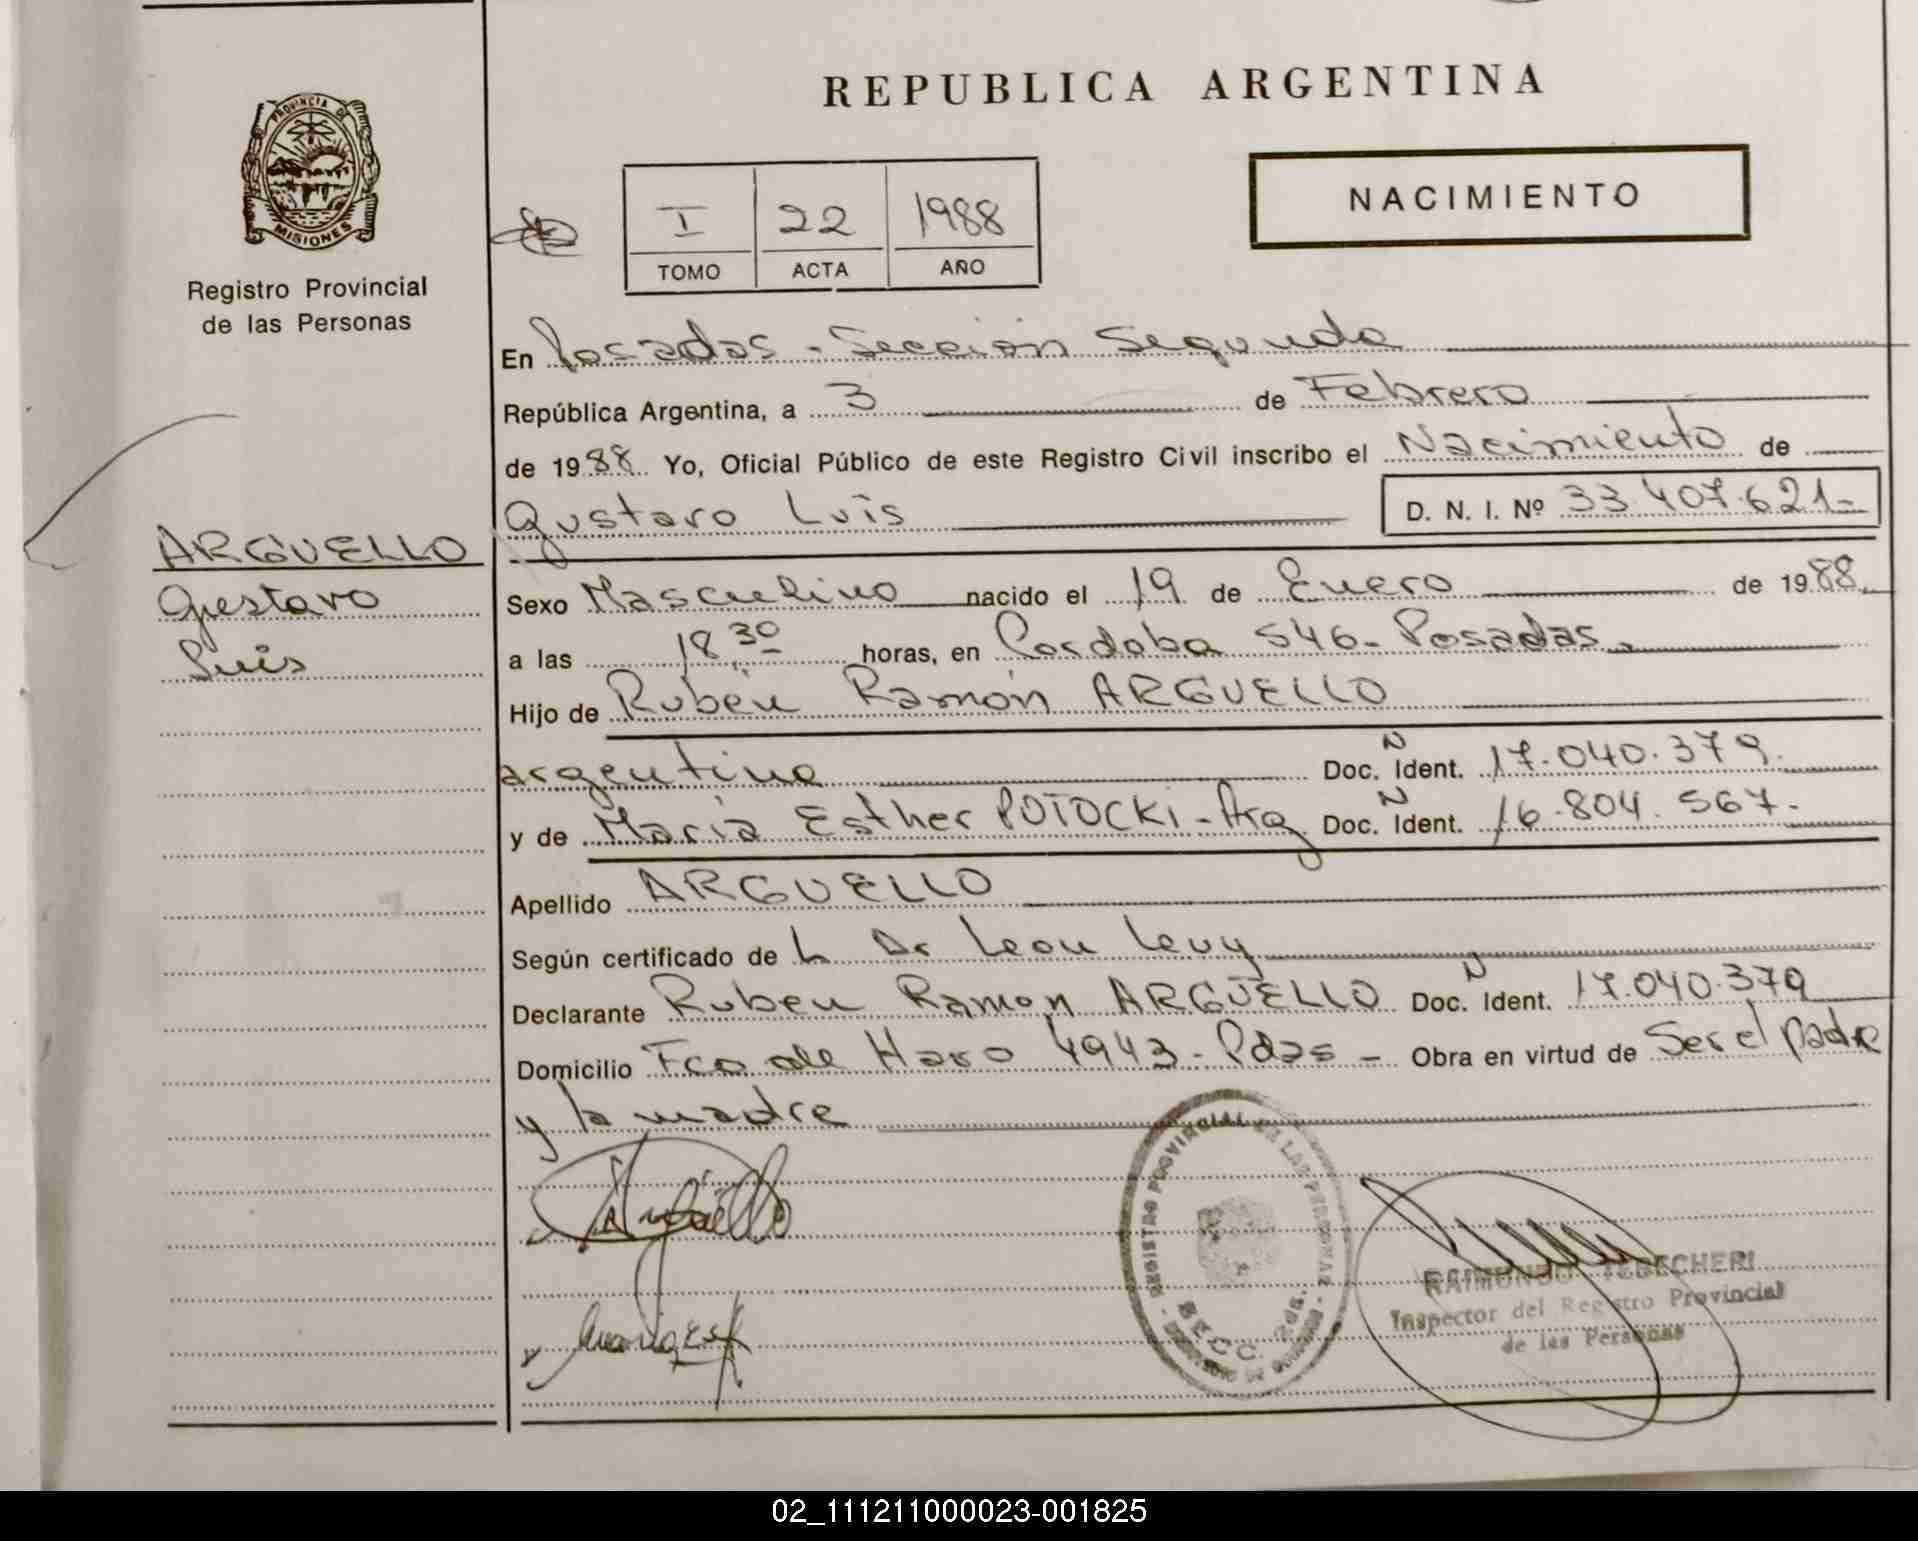 PROVINCIA DE
MISIONES
Registro Provincial
de las Personas
ARGUELLO
Gustavo
Luis
REPUBLICA ARGENTINA
I 22 1988
TOMO ACTA AÑO
NACIMIENTO
En Posadas - Sección Segunda
República Argentina, a 3 de Febrero
de 1988 Yo, Oficial Público de este Registro Civil inscribo el Nacimiento de
Gustavo Luis D. N. I. Nº 33.407.621-
Sexo Masculino nacido el 19 de Enero de 1988
a las 18 30 horas, en Cordoba 546- Posadas
Hijo de Rubén Ramón ARGUELLO
argentino Doc. N Ident. 17.040.379.
y de María Esther POTOCKI - Arg Doc. N Ident. 16.804.567.
Apellido ARGUELLO
Según certificado de L Dr Leon Levy
Declarante Ruben Ramon ARGÜELLO Doc. N Ident. 17.040.379
Domicilio Fco de Haro 4943 - Pdas - Obra en virtud de Ser el padre
y la madre
Argüello
REGISTRO PROVINCIAL DE LAS PERSONAS
SECC. 2da.
RAIMUNDO TEDECHERI
Inspector del Registro Provincial
de las Personas
02_111211000023-001825